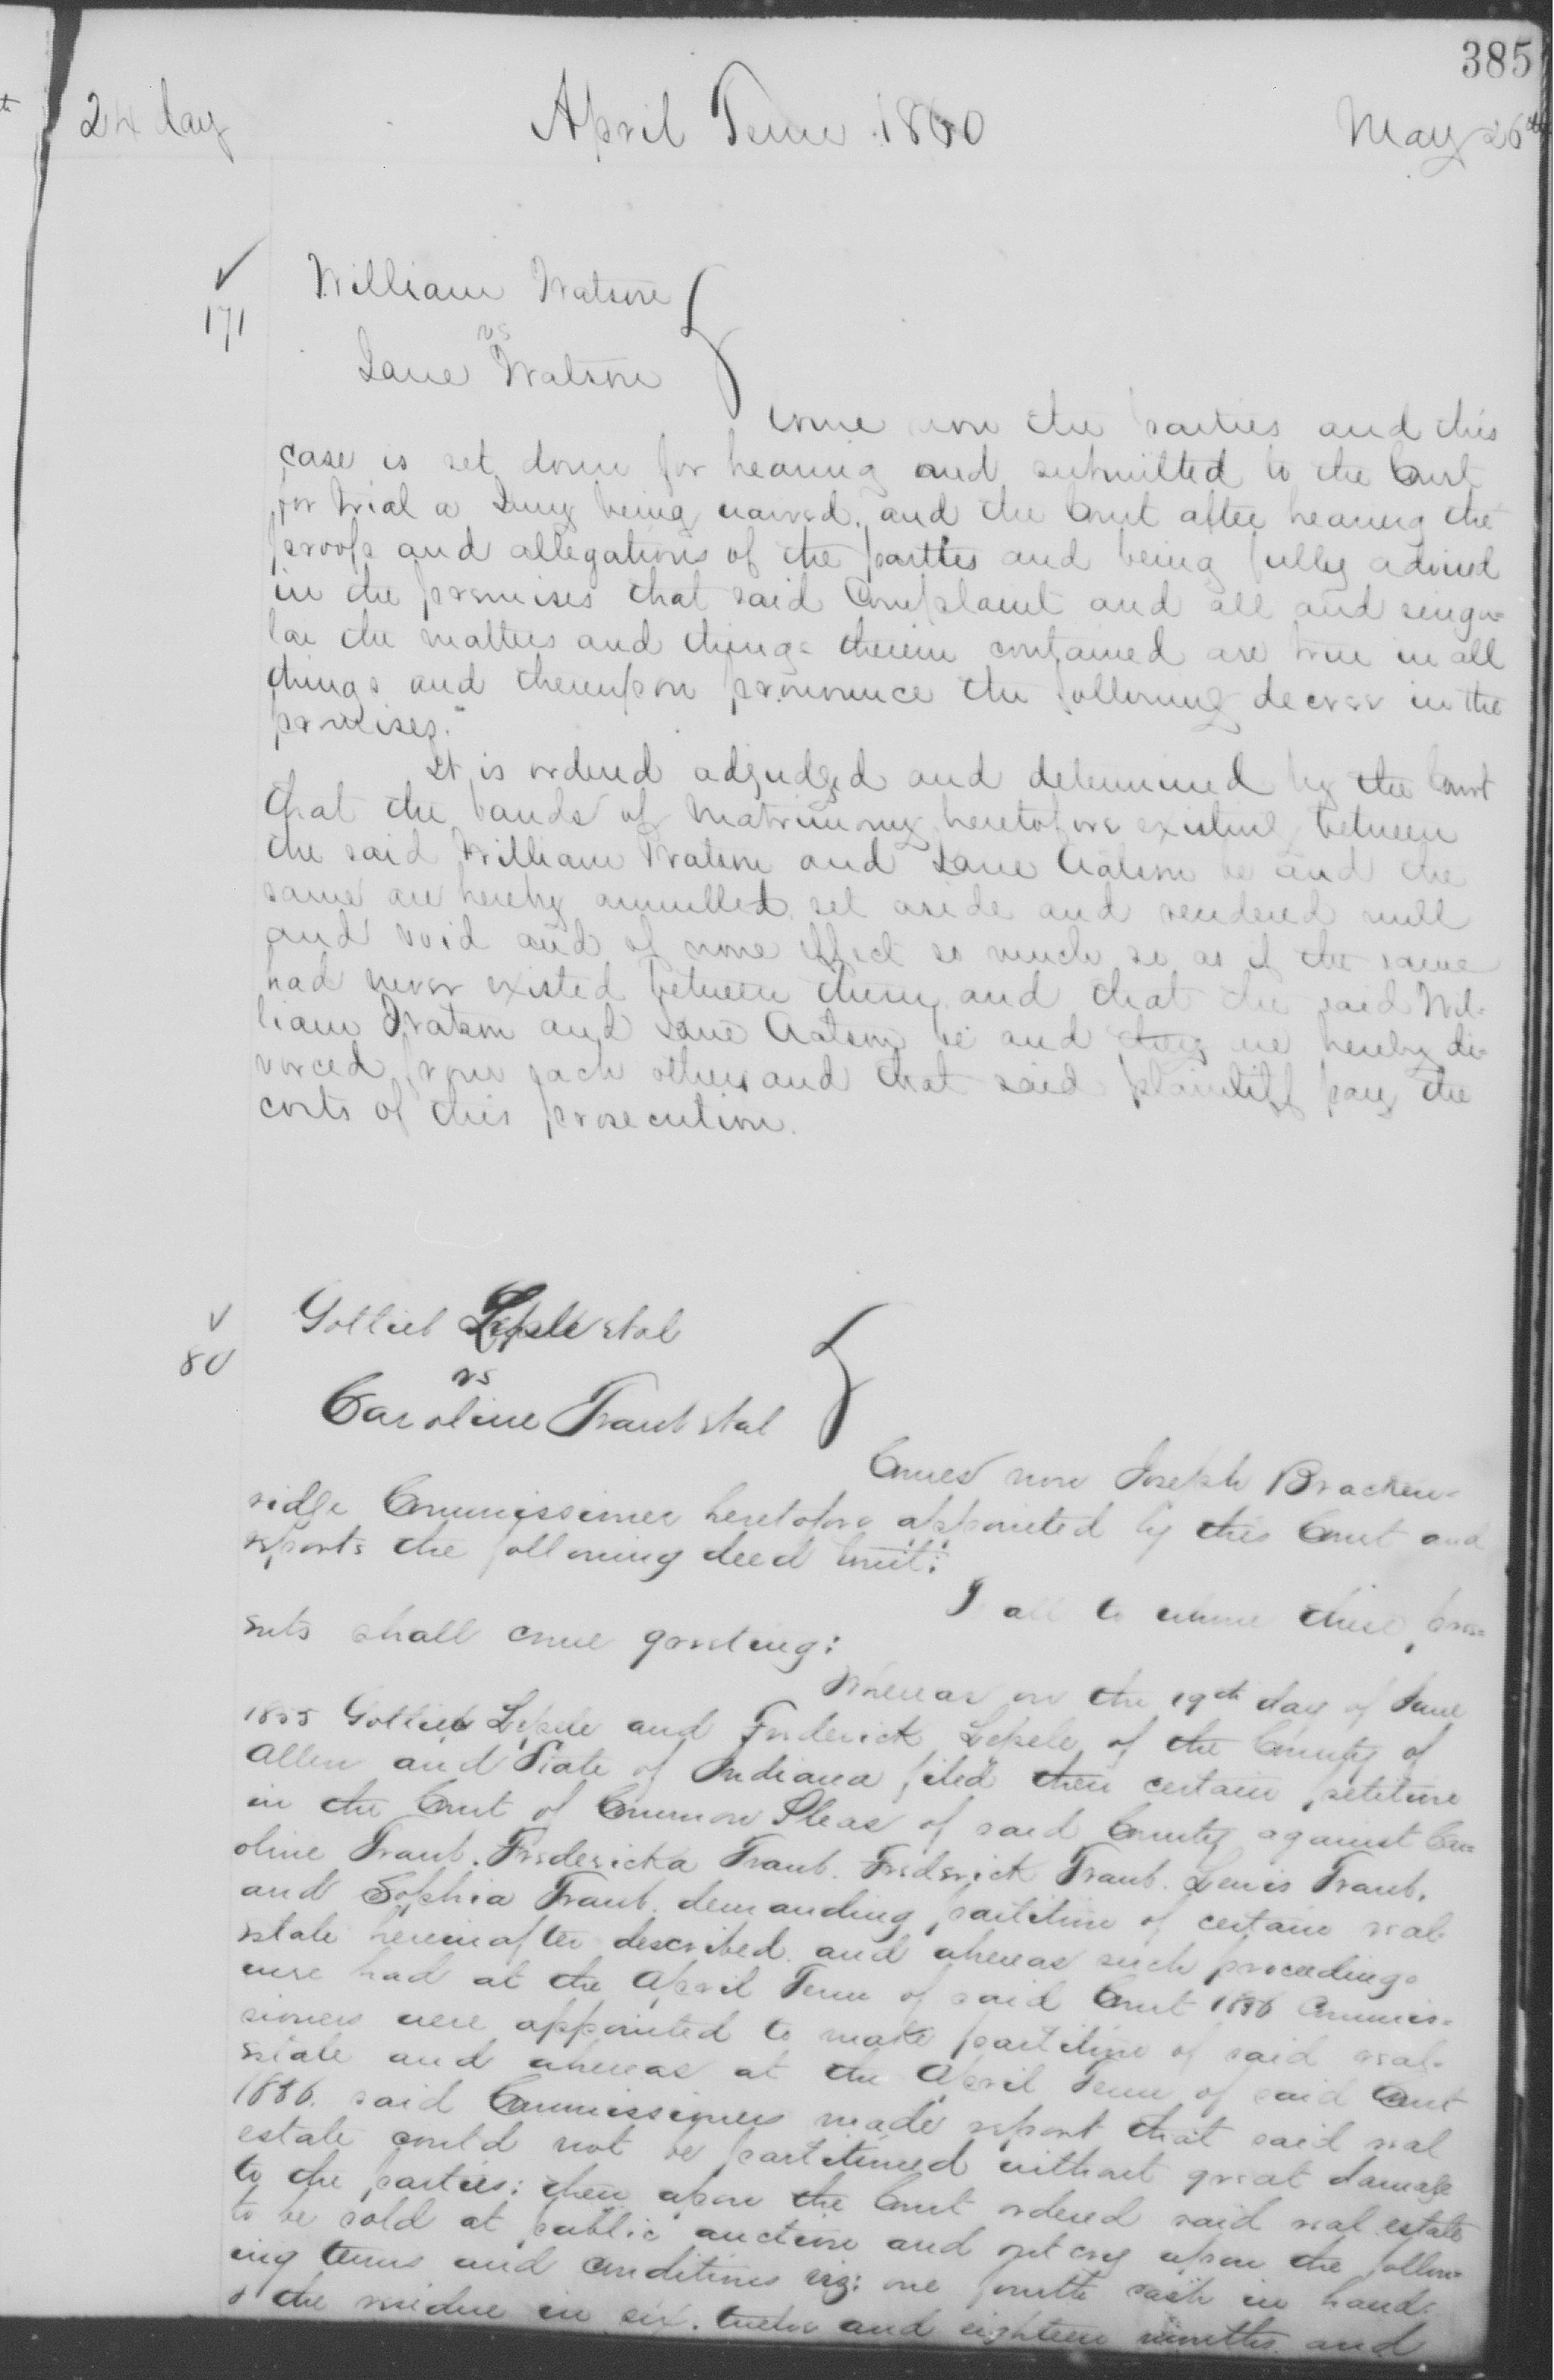 385
24 day April Term 1860 May 26th
✓
171
William Watson
vs
Jane Watson
Come now the parties and this
case is set down for hearing and submitted to the Court
for trial a Jury being waived, and the Court after hearing the
proofs and allegations of the parties and being fully advised
in the premises that said Complaint and all and singu=
lar the matters and things therein contained are true in all
things and thereupon pronounce the following decree in the
premises.
It is ordered adjudged and determined by the Court
that the bands of Matrimony heretofore existing between
the said William Watson and Jane Watson be and the
same are hereby annulled, set aside and rendered null
and void and of none effect so much so as if the same
had never existed between them, and that the said Wil-
liam Watson and Jane Watson be and they are hereby di-
vorced from each other, and that said plaintiff pay the
costs of this prosecution.
✓
80
Gotlieb Lepele et al
vs
Caroline Traub et al
Comes now Joseph Bracken=
ridge Commissioner heretofore appointed by this Court and
reports the following deed towit:
To all to whom these pres=
ents shall come greeting:
Whereas on the 19th day of June
1855 Gotlieb Lepele and Frederick Lepele of the County of
Allen and State of Indiana filed their certain petition
in the Court of Common Pleas of said County against Car=
oline Traub. Fredericka Traub. Frederick Traub. Lewis Traub.
and Sophia Traub. demanding partition of certain real-
estate hereinafter described. and whereas such proceedings
were had at the April Term of said Court 1856 Commis=
sioners were appointed to make partition of said real-
estate and whereas at the April Term of said Court
1856. said Commissioners made report that said real
estate could not be partitioned without great damage
to the parties: then upon the Court ordered said real estate
to be sold at public auction and out cry upon the follow=
ing terms and conditions viz: one fourth cash in hand.
& the residue in six. twelve and eighteen months. and